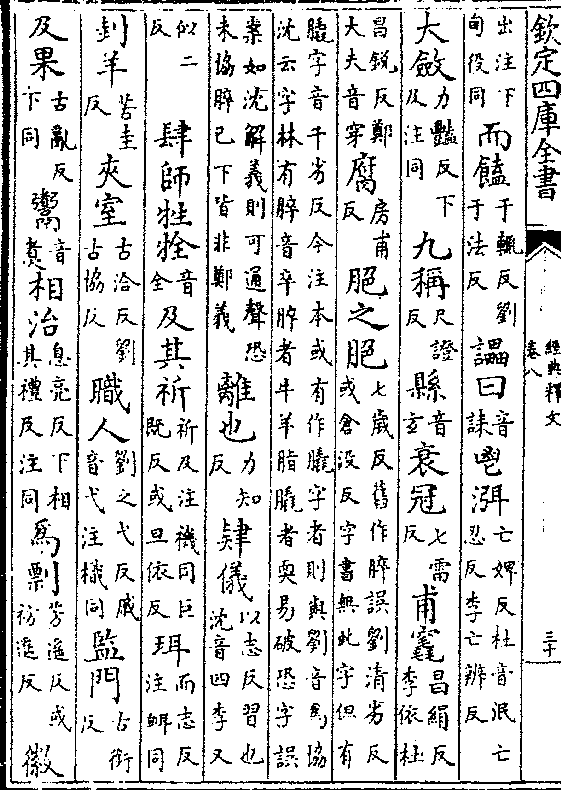 欽定四庫全書
經典釋文
卷八
三十
出注下甸役同而饁于輒反劉于法反讄曰音誄鬯渳亡婢反杜音泯亡忍反李亡辨反
大斂力豔反下及注同九稱尺證反縣音玄衰冠七雷反甫竁昌絹反李依杜
昌銳反鄭大夫音穿腐房甫反脃之脃七歲反舊作脺誤劉清劣反或倉没反字書無此字但有
膬字音千劣反今注本或有作膬字者則與劉音為協沈云字林有脺音卒脺者牛羊脂膬者耎易破恐字誤
案如沈解義則可通聲恐未協脺已下皆非鄭義離也力知反肄儀以志反習也沈音四李又
似二反肆師牲牷音全及其祈祈及注禨同巨既反或巨依反珥而志反注衈同
刲羊苦圭反夾室古洽反劉古協反職人劉之弋反戚音弋注樴同監門古銜反
及果古亂反下同鬻音煮相治息亮反下相其禮反注同為剽芳遙反或祔遙反徽